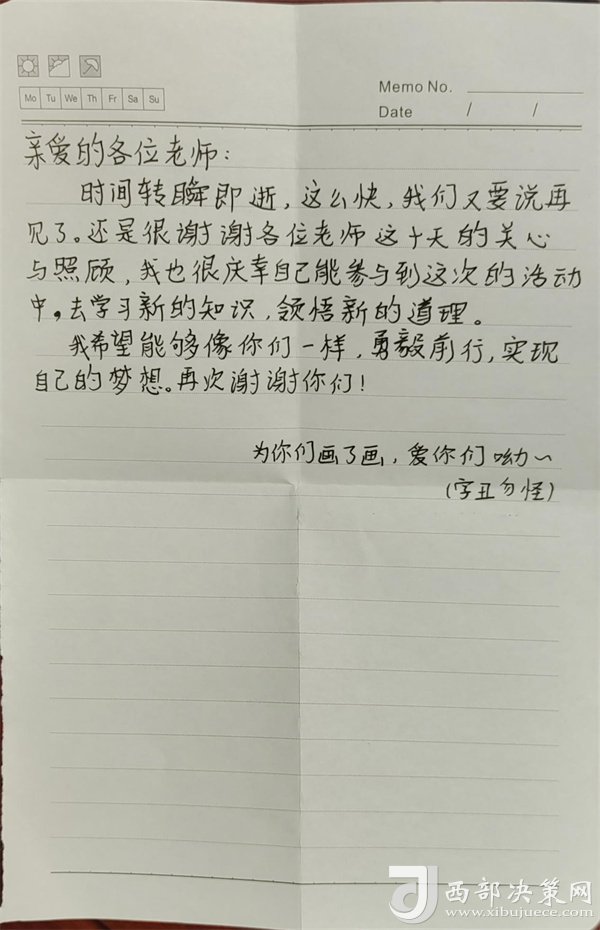 Memo No.
Mo Tu We Th Fr Sa Su
Date / /
亲爱的各位老师：
时间转瞬即逝，这么快，我们又要说再
见了。还是很谢谢各位老师这十天的关心
与照顾，我也很庆幸自己能参与到这次的活动
中。去学习新的知识，领悟新的道理。
我希望能够像你们一样，勇毅前行，实现
自己的梦想。再次谢谢你们！
为你们画了画，爱你们呦～
（字丑勿怪）
西部决策网
www.xibujuece.com